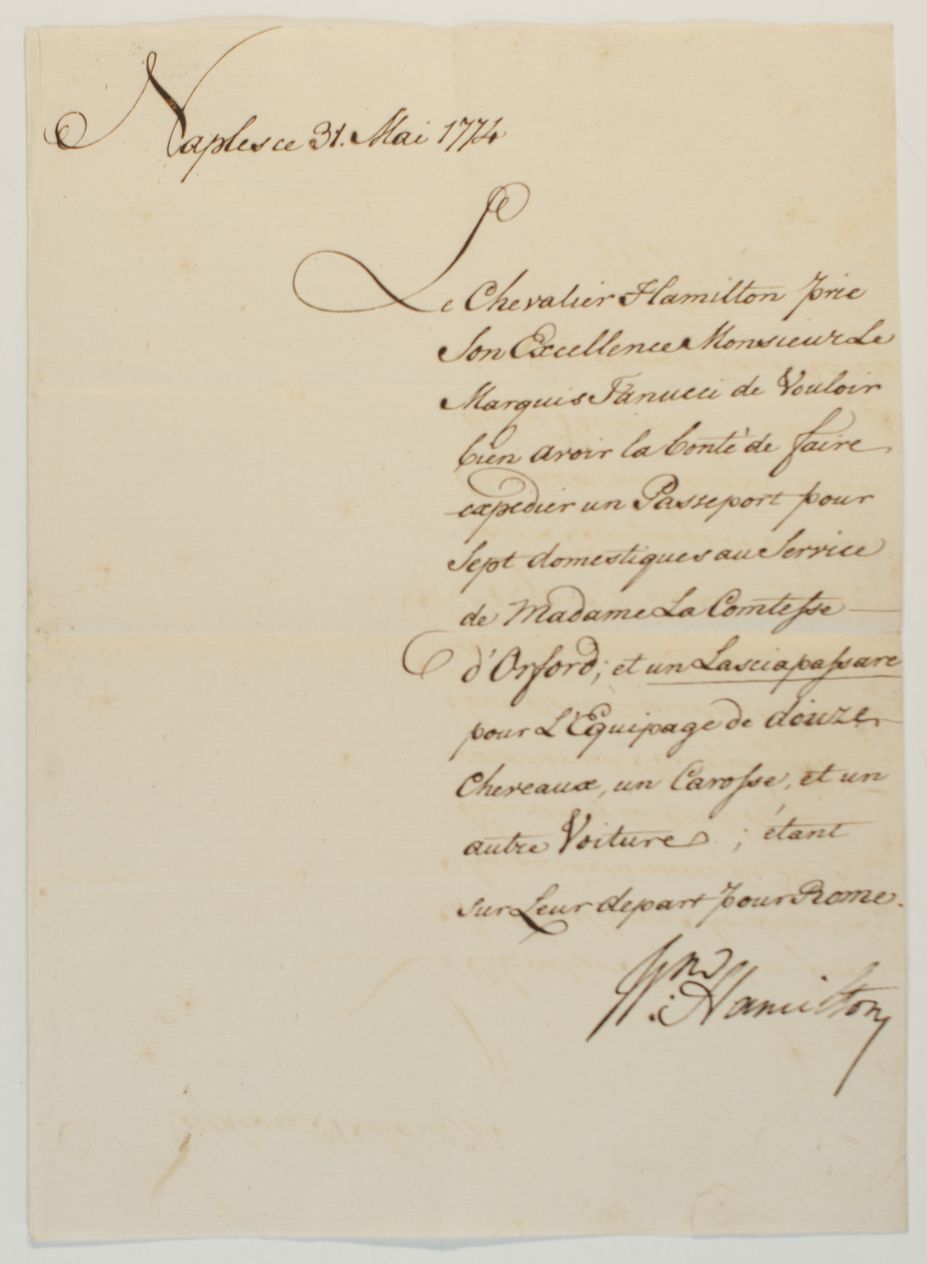 Naples ce 31. Mai 1774
Le Chevalier Hamilton prie
Son Excellence Monsieur Le
Marquis Tanucci de Vouloir
bien avoir la bonté de faire
expedier un Passeport pour
Sept domestiques au Service
de Madame La Comtesse
d'Orford; et un Lasciapassare
pour L'Equipage de douze
Chevaux, un Carosse, et un
autre Voiture ; étant
sur Leur depart pour Rome.
Wm. Hamilton